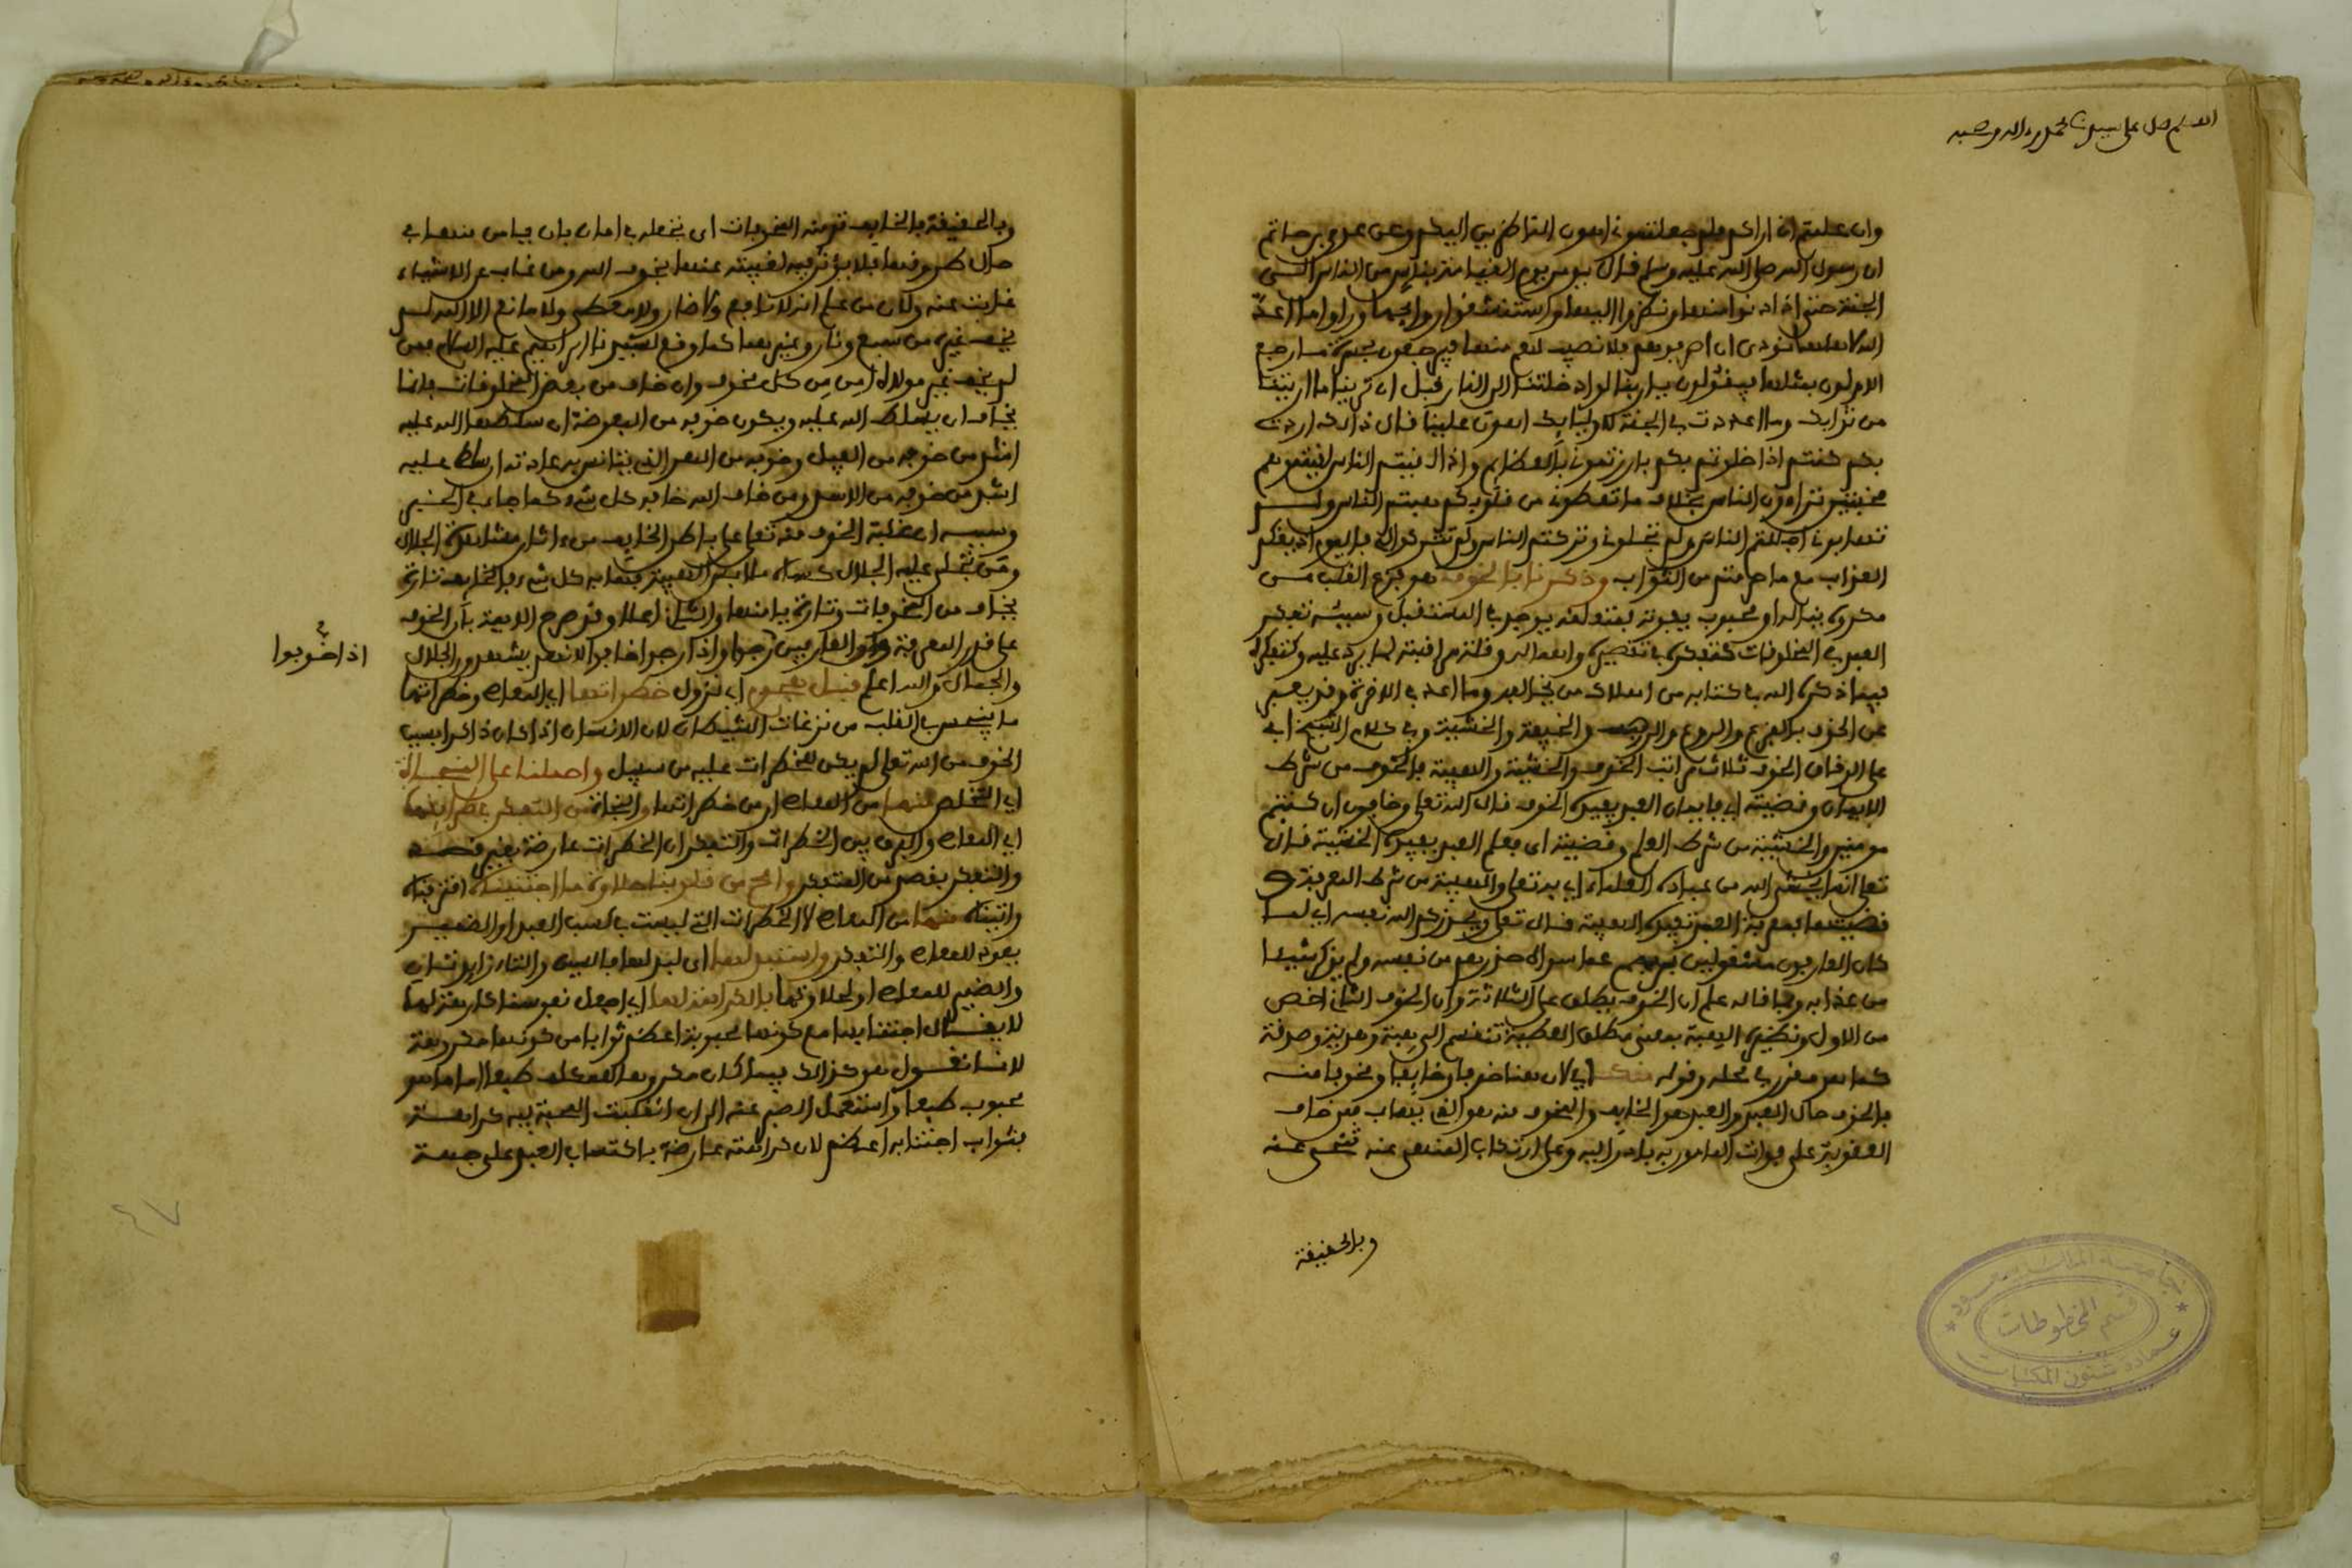 اللهم صل على سيدنا محمد وءاله وصحبه
وان علمتم اني اراكم فلم جعلتموني اهون الناظرين اليكم وعن عدي بن حاتم
ان رسول الله صلى الله عليه وسلم قال يومر يوم القيامة بناس من الناس الى
الجنة حتى اذا دنوا منها ونظروا اليها واستنشقوا روائحها وراوا ما اعد
الله لاهلها نودي ان اصرفوهم فلا نصيب لهم منها فيرجعون بحسرة ما رجع
الاولون بمثلها فيقولون يا ربنا لو ادخلتنا النار قبل ان ترينا ما اريتنا
من ثوابك وما اعددت في الجنة لاوليائك اهون علينا قال ذالك اردت
بكم كنتم اذا خلوتم بكم بارزتموني بالعظائم واذا لقيتم الناس لقيتموهم
مخبتين تراءون الناس بخلاف ما تعطوني من قلوبكم هبتم الناس ولم
تهابوني اجللتم الناس ولم تجلوني وتركتم الناس ولم تتركوا لي فاليوم اذيقكم
العذاب مع ما حرمتم من الثواب وذكرنا بالخوف هو فزع القلب من
مكروه يناله او محبوب يفوته بفعله يوجد في المستقبل وسببه تفكر
العبد في المخلوقات كتفكره في تقصيره واهماله وقلة مراقبته لما يرد عليه وكتفكره
فيما ذكره الله في كتابه من اهلاك من خالفه وما اعد في الاخرة وقد يعبر
عن الخوف بالفزع والروع والرهب والخيفة والخشية وفي كلام الشيخ ابي
علي الدقاق الخوف ثلاث مراتب الخوف والخشية والهيبة فالخوف من شرط
الايمان وقضيته اي بايمان العبد يفيده الخوف قال الله تعالى وخافون ان كنتم
مومنين والخشية من شرط العلم وقضيته اي فعلم العبد يفيده الخشية قال
تعالى انما يخشى الله من عباده العلماء اي به تعالى والهيبة من شرط المعرفة و
قضيتها فمعرفة العبد تفيده الهيبة قال تعالى ويحذركم الله نفسه اي لما
كان العارفون مشغولين بربهم عما سواه حذرهم من نفسه ولم يذكر شيئا
من عذابه وبما قاله علم ان الخوف يطلق على الثلاثة وان الخوف الثاني اخص
من الاول ونظيره الهبة بمعنى مطلق العطية تنقسم الى هبة وهدية وصدقة
كما هو مقرر في محله وقوله منك اي لان هنا خوفا وخايفا ومخوفا منه
فالخوف حال العبد والعبد هو الخايف والمخوف منه هو الذي يهاب فمن خاف
العقوبة على فوات المامور به بادر اليه وعلى ارتكاب المنهي عنه تنحى عنه
وبالحقيقة
وبالحقيقة فالخايف تومنه المخوفات اي تجعله في امان بان يامن منها في
حال طروقها فلا يؤثر فيه لغيبته عنها بخوف الله ومن غاب عن الاشياء
غابت عنه ولان من علم انه لا نافع ولا ضار ولا معطي ولا مانع الا الله لم
يخف غيره من سبع ونار وغيرهما كما وقع لسيدنا ابراهيم عليه السلام فمن
لم يخف غير مولاه امن من كل مخوف وان خاف من بعض المخلوقات فانما
يخاف ان يسلطه الله عليه ويكون خوفه من البعوضة ان سلطها الله عليه
اشد من خوفه من الفيل وخوفه من الهر الذي يتانس به عادة ان سلط عليه
اشد من خوفه من الاسد ومن خاف الله خافه كل شيء كما جاء في الخبر
وسببه اي غلبة الخوف منه تعالى على باطن الخايف من ءاثار مشاهدة الجلال
ومن تجلى عليه الجلال كساه ملابس الهيبة فهابه كل شيء فالخايف تارة
يخاف من المخوفات وتارة يامنها والثاني اعلا وقد صرح الايمة بان الخوف
على قدر المعرفة وان العارفين رجوا واذا رجوا خافوا لانهم بشهود الجلال
والجمال والله اعلم قبل هجوم اي نزول خطراتها اي المعاصي وخطراتها
ما يهجس في القلب من نزغات الشيطان لان الانسان اذا كان ذاكرا بسبب
الخوف من الله تعالى لم يكن للخطرات عليه من سبيل واحملنا على النجاة
اي التخلص منها من المعاصي او من خطراتها والنجاة من التفكر في طرائقها
اي المعاصي والفرق بين الخطرات والتفكر ان الخطرات عارضة بغير قصد
والتفكر بقصد من المتفكر وامح من قلوبنا حلاوة ما اجتنيناه اقترفناه
واتيناه منها من المعاصي لا الخطرات التي ليست بكسب العبد او الضمير
يعود للمعاصي والتفكر واستبدلها اي ابدلها
والضمير للمعاصي او لحلاوتها بالكراهة لها اي اجعل نفوسنا كارهة لها
لا يقال اجتنابها مع كونها محبوبة اعظم ثوابا من كونها مكروهة
لانا نقول هو كذالك فيما كان مكروها للمكلف طبعا اما ما هو
محبوب طبعا واستعمل الصبر عنه الى ان انقلبت المحبة فيه كراهة
فثواب اجتنابه اعظم لان كراهته عارضة باكتساب العبد على جهة
اذا خوفوا
قسم المخطوطات
جامعة الملك سعود
عمادة شئون المكتبات
٤٧